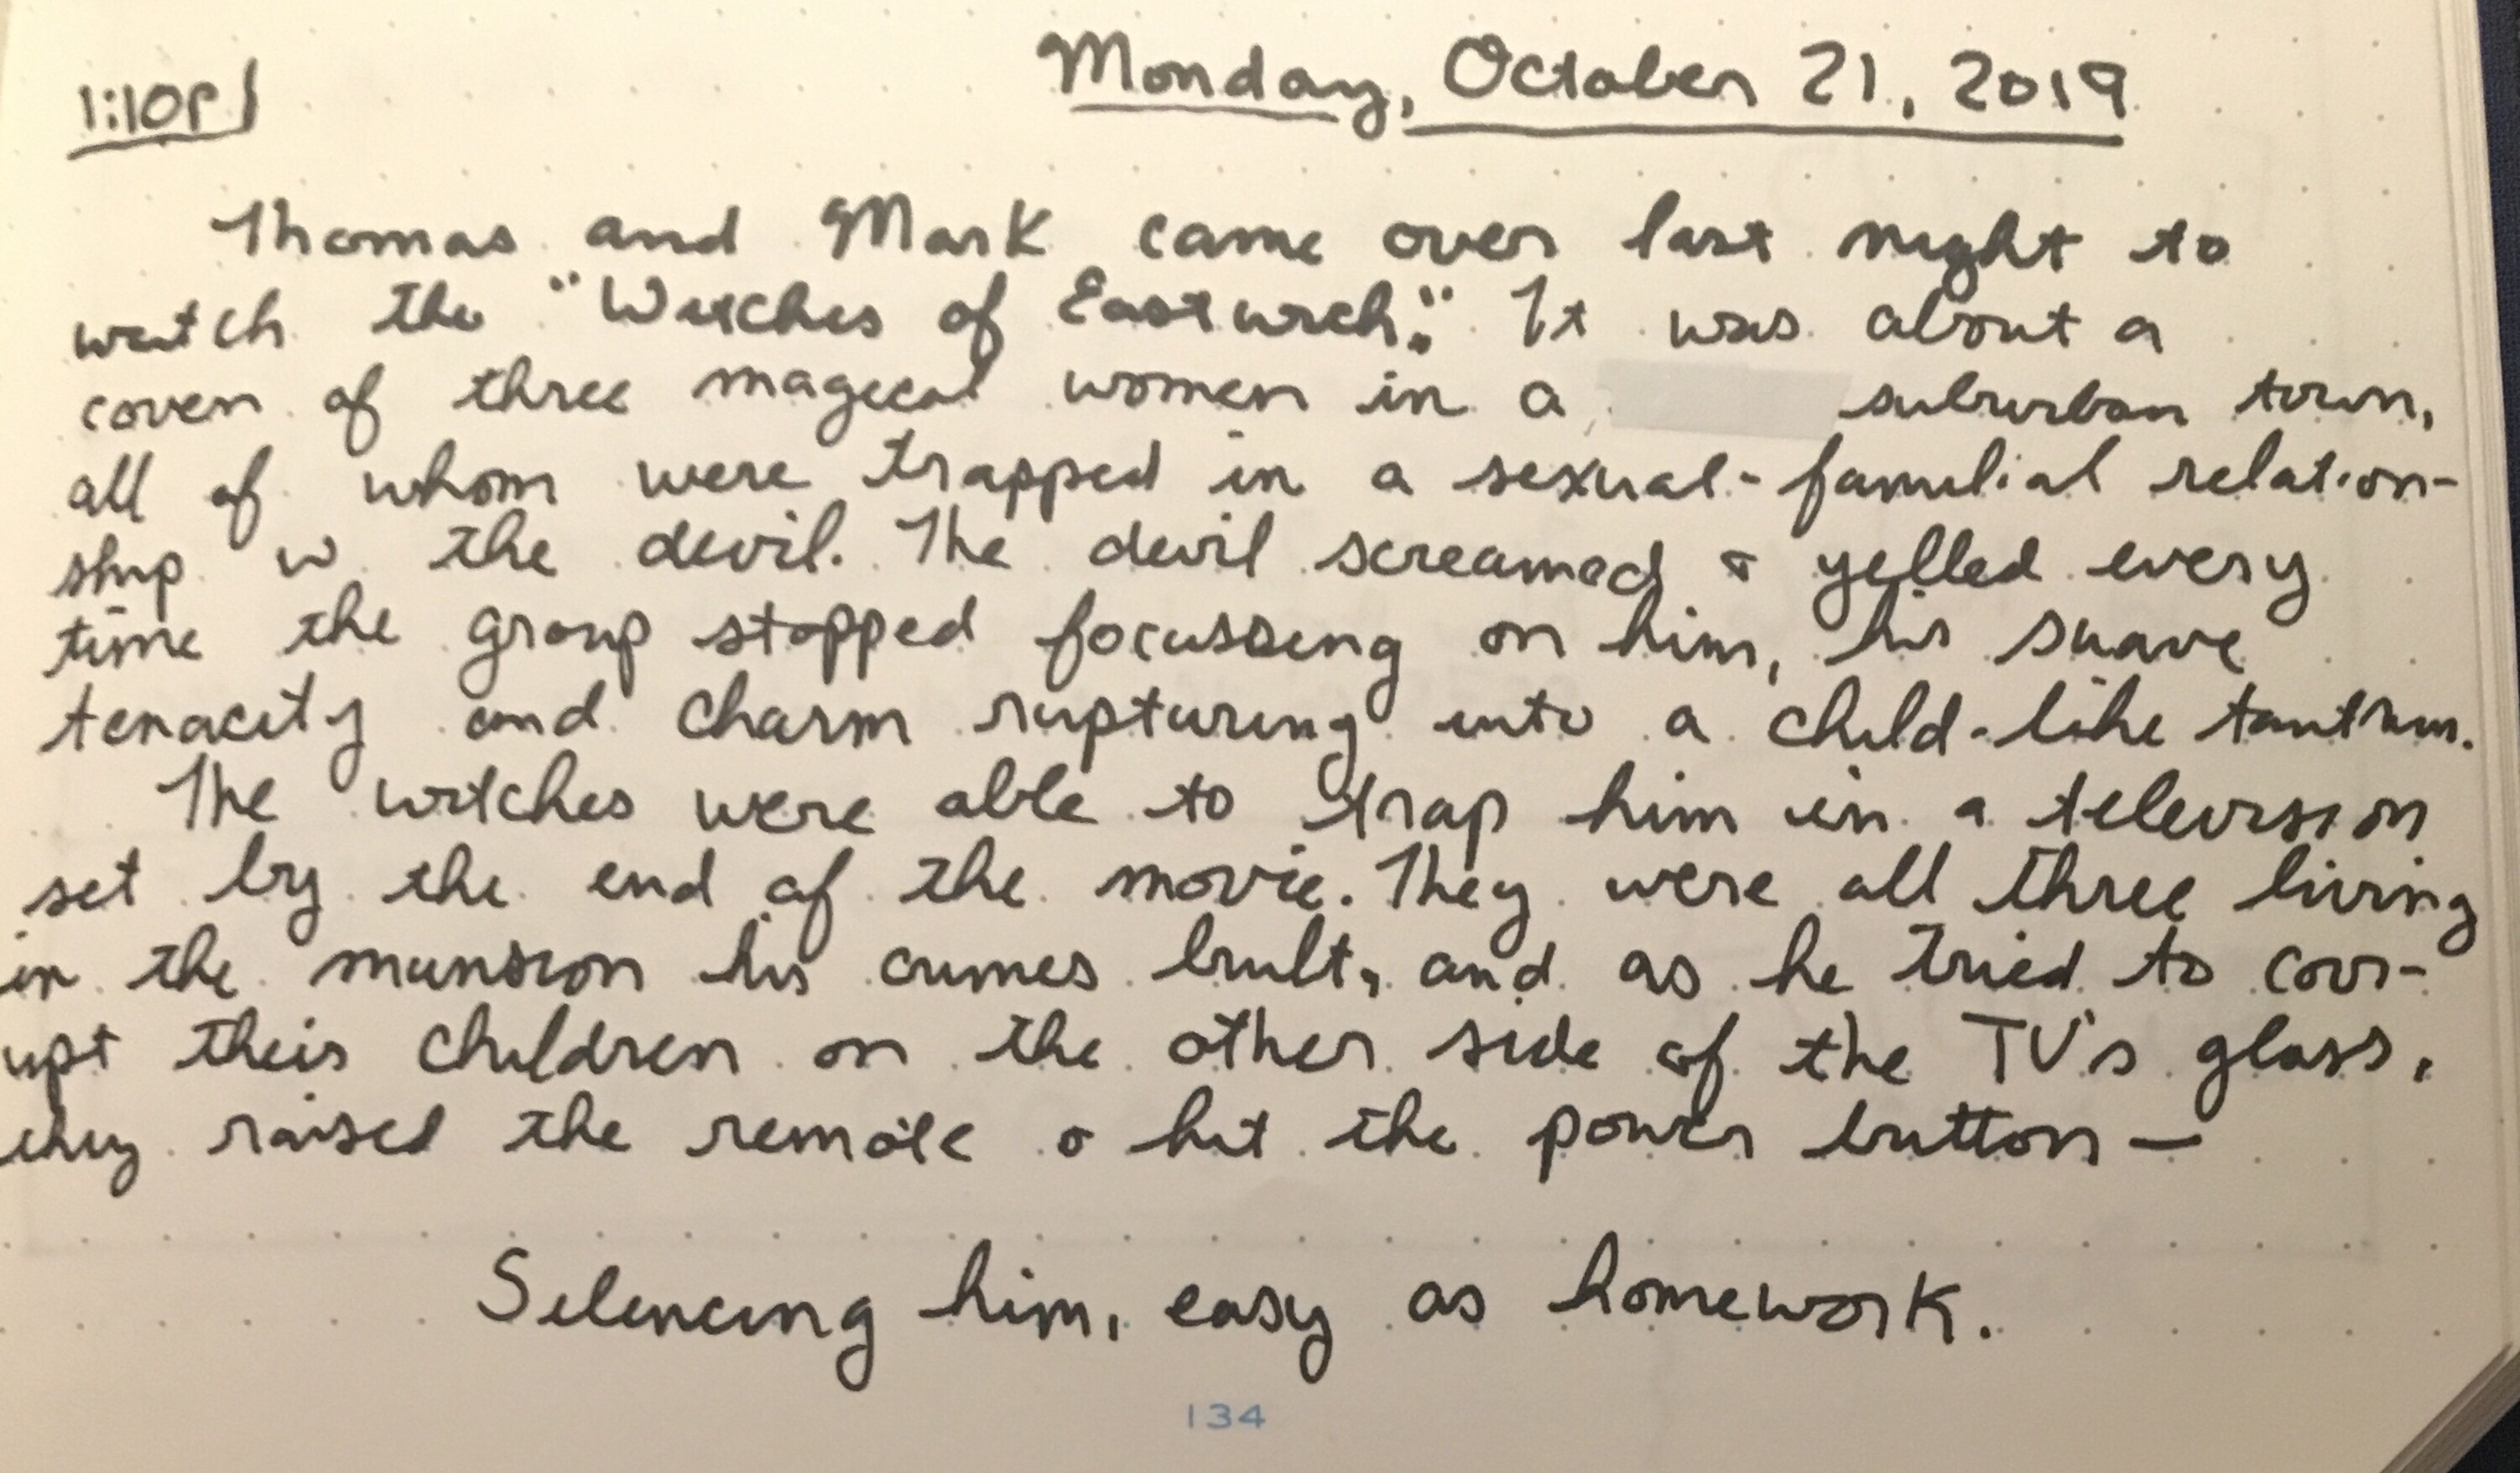 1:10P
Monday, October 21, 2019
Thomas and Mark came over last night to
watch the "Witches of Eastwich." It was about a
coven of three magical women in a suburban town,
all of whom were trapped in a sexual-familial relation-
ship w the devil. The devil screamed & yelled every
time the group stopped focussing on him, his suave
tenacity and charm rupturing into a child-like tantrum.
The witches were able to trap him in a television
set by the end of the movie. They were all three living
in the mansion his crimes built, and as he tried to corr-
upt their children on the other side of the TV's glass,
they raised the remote & hit the power button—
Silencing him, easy as homework.
134